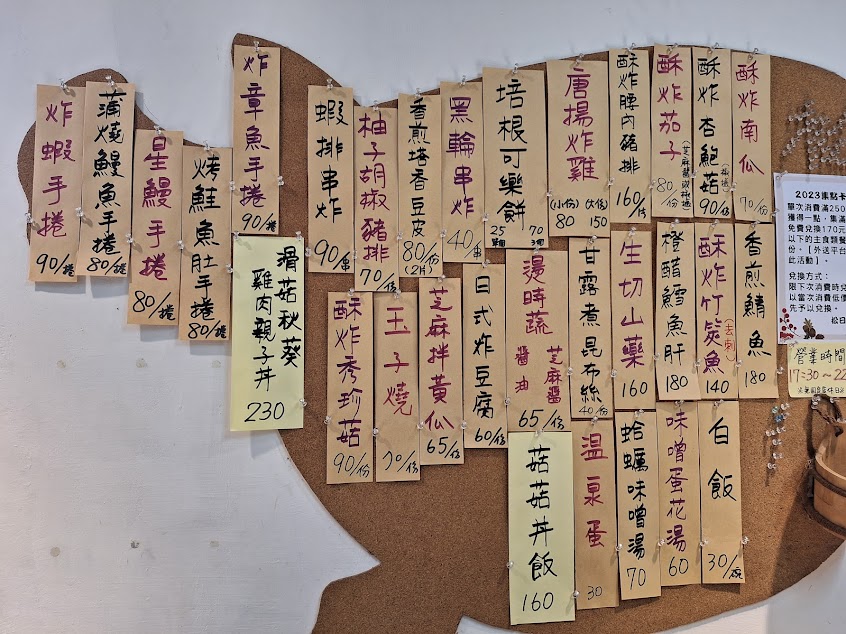 炸蝦手捲
90/捲
蒲燒鰻魚手捲
80/捲
星鰻手捲
80/捲
烤鮭魚肚手捲
80/捲
炸章魚手捲
90/捲
滑菇秋葵
雞肉親子丼
230
蝦排串炸
90/串
柚子胡椒豬排
70/份
香煎塔香豆皮
80/份
(2片)
黑輪串炸
40/串
培根可樂餅
25
70
3個
唐揚炸雞
(小份)
80
(大份)
150
酥炸腰內豬排
160/份
酥炸茄子
80/份
酥炸杏鮑菇
(椒鹽)
90/份
酥炸南瓜
70/份
酥炸秀珍菇
90/份
玉子燒
70/份
芝麻拌黃瓜
65/份
日式炸豆腐
60/份
燙時蔬
芝麻醬
醬油
65/份
甘露煮昆布絲
40/份
生切山藥
160
橙醋鱈魚肝
180
酥炸竹筴魚
(去刺)
140
香煎鯖魚
180
菇菇丼飯
160
溫泉蛋
30
蛤蠣味噌湯
70
味噌蛋花湯
60
白飯
30/碗
2023集點卡
單次消費滿250
獲得一點，集滿
免費兌換170元
以下的主食類餐
份。【外送平台
此活動】。
兌換方式：
限下次消費時兌
以當次消費低價
先予以兌換。
松日
營業時間
17:30~22